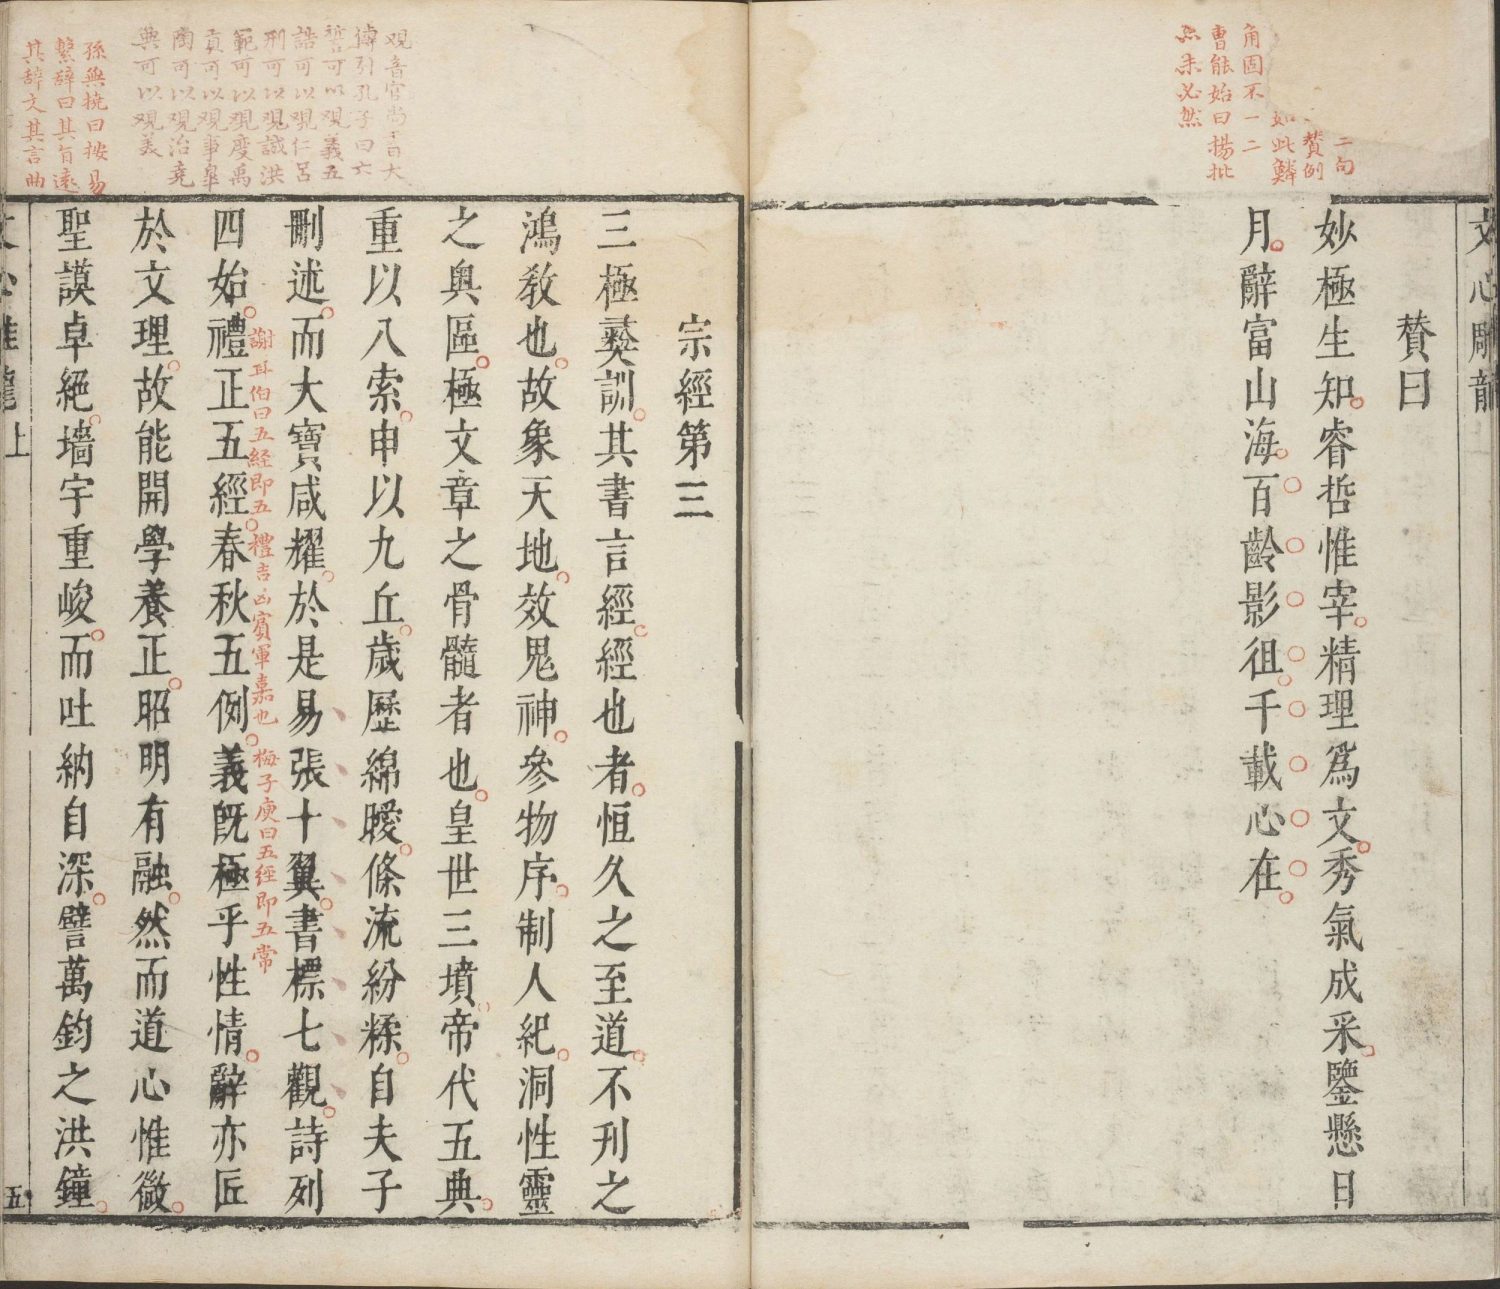 文心雕龍
二句
賛例
如此鱗
角固不一二
曹能始曰揚批
点未必然
賛曰
妙極生知睿哲惟宰精理爲文秀氣成采鑒懸日
月辭富山海百齡影徂千載心在
宗經第三
三極彝訓其書言經經也者恒久之至道不刊之
鴻教也故象天地效鬼神參物序制人紀洞性靈
之奧區極文章之骨髓者也皇世三墳帝代五典
重以八索申以九丘歲歷綿曖條流紛糅自夫子
刪述而大寶咸耀於是易張十翼書標七觀詩列
四始禮正五經春秋五例義旣極乎性情辭亦匠
於文理故能開學養正昭明有融然而道心惟微
聖謨卓絕墻宇重峻而吐納自深譬萬鈞之洪鐘
謝耳伯曰五経即五禮吉凶賓軍嘉也
梅子庾曰五經即五常
观音官尚書大
傳引孔子曰六
誓可以观義五
誥可以观仁呂
刑可以观誠洪
範可以观度禹
貢可以观事皐
陶可以观治尭
典可以观美
孫無撓曰按易
繫辞曰其旨遠
其辞文其言曲
文心雕龍
上
五